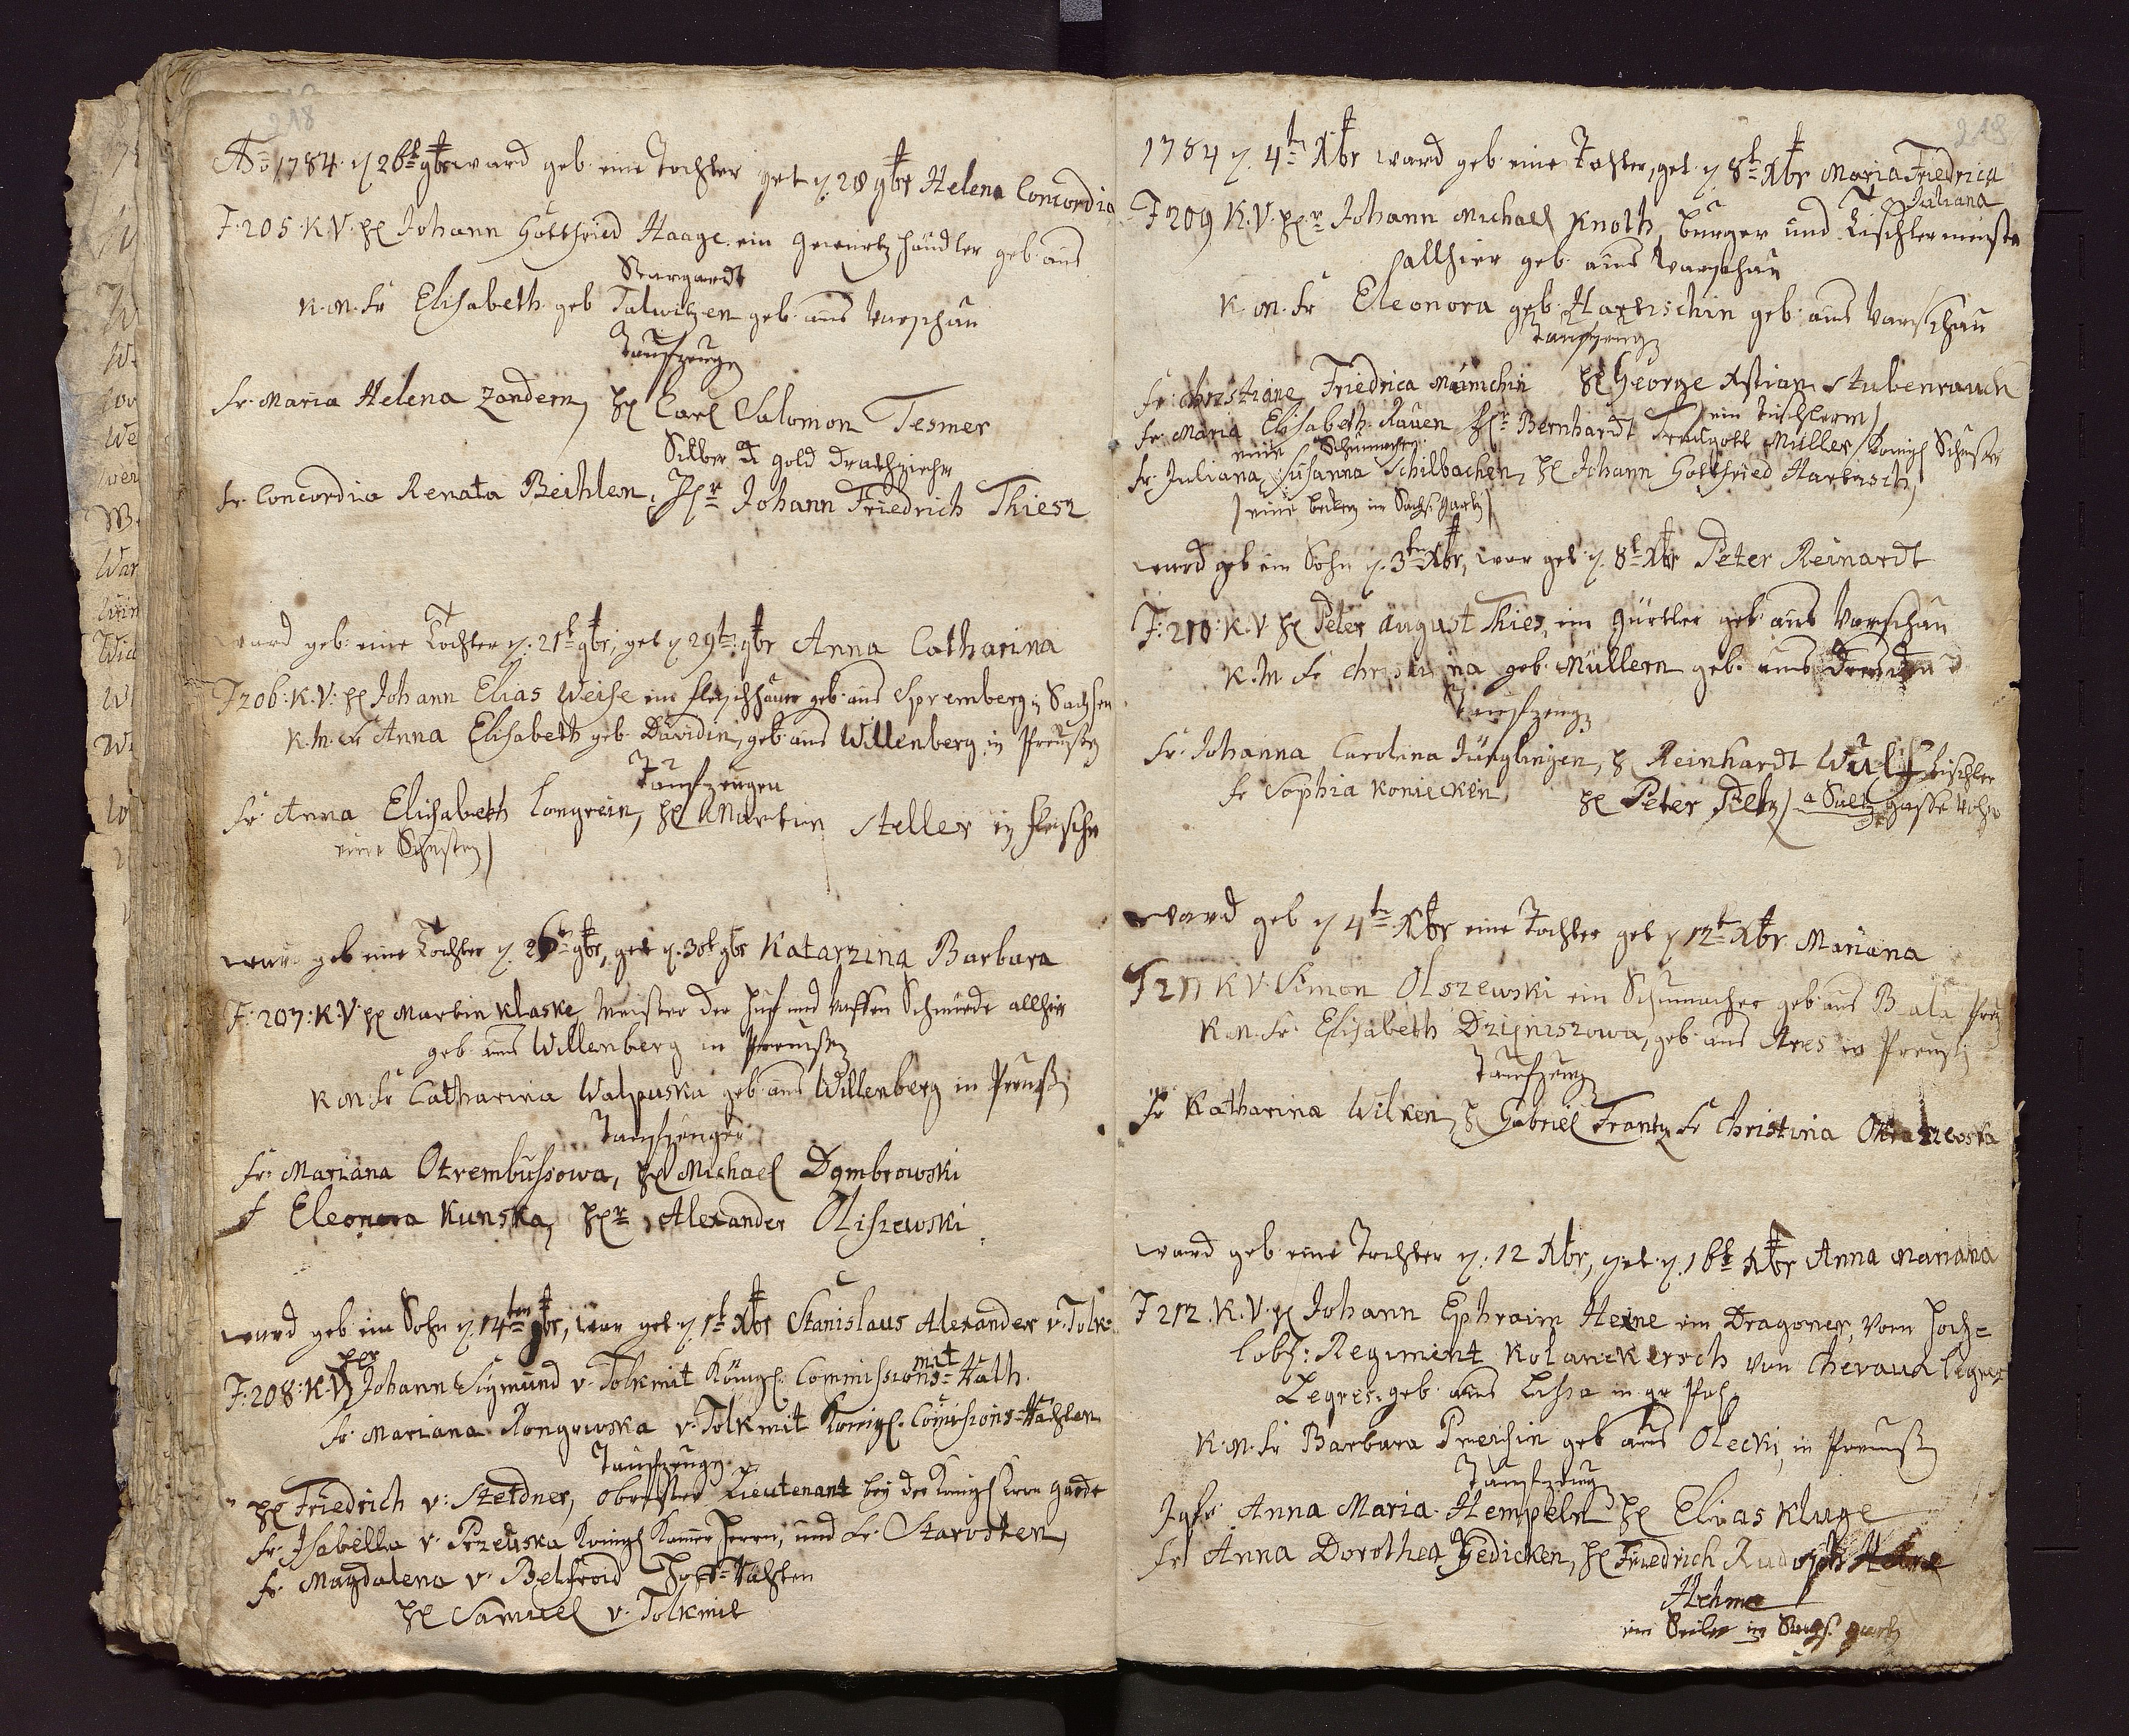 218
Ao 1784 d 26t 9br ward geb eine Tochter get d. 28 9br Helena Concordia
F. 205. K.V. H Johann Gottfried Haage ein Gewürtzhändler geb. aus
Stargardt
K.M. Fr Elisabeth geb Talwitzen geb. aus Warschau
Taufzeugen
Fr. Maria Helena Zandern, H Carl Salomon Tesmer
Silber u Gold Drathzieher
Fr. Concordia Renata Beihlen, Hr Johann Friedrich Thiesz
ward geb. eine Tochter d. 21t 9br, get d 29t 9br Anna Catharina
F 206. K.V. H Johann Elias Weise ein Fleischhauer geb. aus Spremberg in Sachsen
K.M. Fr Anna Elisabeth geb. Davidin, geb. aus Willenberg in Preußen
Taufzeugen
Fr Anna Elisabeth Longrein, H Martin Steller ein Fleischer
eine Schustern)
ward geb eine Tochter d. 26t 9br, get d. 30t 9br Katarzina Barbara
F. 207: K.V. H Martin Klaske, Meister der Huf und Waffen Schmiede allhier
geb aus Willenberg in Preußen
K.M. Fr Catharina Walpuska geb. aus Willenberg in Preußen
Taufzeugen
Fr. Mariana Otrembussowa, H Michael Dąmbrowski
F Eleonora Kunska, Hr Alexander Oliszewski
ward geb ein Sohn d. 14ten 9br, war get d 1t Xbr Stanislaus Alexander v. Tolk=
mit
F. 208: K.V. Hr Johann Sigmund v. Tolkmit Königl. Commissions=Rath
Fr. Mariana Rongowska v. Tolkmit Königl. Commissions=Räthen
Taufzeugen
H Friedrich v. Stetdner, Obrister Lieutenant bey der Königl Kron Garde
Fr. Isabella v. Przeuska Königl Kammer Herrn, und Fr. Starosten,
Fr. Magdalena v. Belfroid Hoff=Räthen
H Samuel v. Tolkmit
218
1784 d. 4t Xbr ward geb eine Tochter, get. d 8t Xbr Maria Friedrica
Juliana
F 209 K.V. Hr Johann Michael Knoth, Bürger und Tischlermeister
allhier geb. aus Warschau
K.M. Fr Eleonora geb. Hartischin geb. aus Warschau
Taufzeugen
Fr. Christiane Friedrica Münchin H George Xstian Stubenrauch
ein Tischlerm)
Fr. Maria Elisabeth Rauen Hr Bernhardt Traugott Müller Königl Schuster
eine Schumachern
Fr. Juliana Susanna Schilbachen, H Johann Gottfried Hartisch,
) eine Becken im Sachs. Garten)
ward geb ein Sohn d. 3ten Xbr, war get d. 8t Xbr Peter Reinardt
F. 210: K.V H Peter August Thies, ein Gürtler geb aus Warschau
K.M Fr Christina geb. Müllern geb. aus Dresden
Taufzeugen
Fr. Johanna Carolina Jünglingen, H Reinhardt Wulf Tischler
Fr Sophia Koniecken, H Peter Peltz
ward geb d 4t Xbr eine Tochter get d 12t Xbr Mariana
F 211 K V. Simon Olszewski ein Schumacher geb aus Bala Preuß
K.M. Fr. Elisabeth Dzięniszowa, geb. aus Ares in Preußen
Taufzeugen
Fr Katharina Wilken, H Gabriel Frantz, Fr Christina
ward geb eine Tochter d. 12 Xbr, get. d. 16t Xbr Anna Mariana
F 212. K.V. H Johann Ephraim Heine ein Dragoner, vom Hoch=
löbl: Regiment Kolanckersch von Chevaux Legres
Legres. geb. aus Lissa in gr Pohl
K.M. Fr Barbara Preisin geb aus Olecki, in Preußen
Taufzeugen
Jgfr. Anna Maria Hempeln H Elias Kluge
Fr Anna Dorothea Gedicken, H Friedrich Rudolph
Hehme
ein Seiler im Sachs. Garten